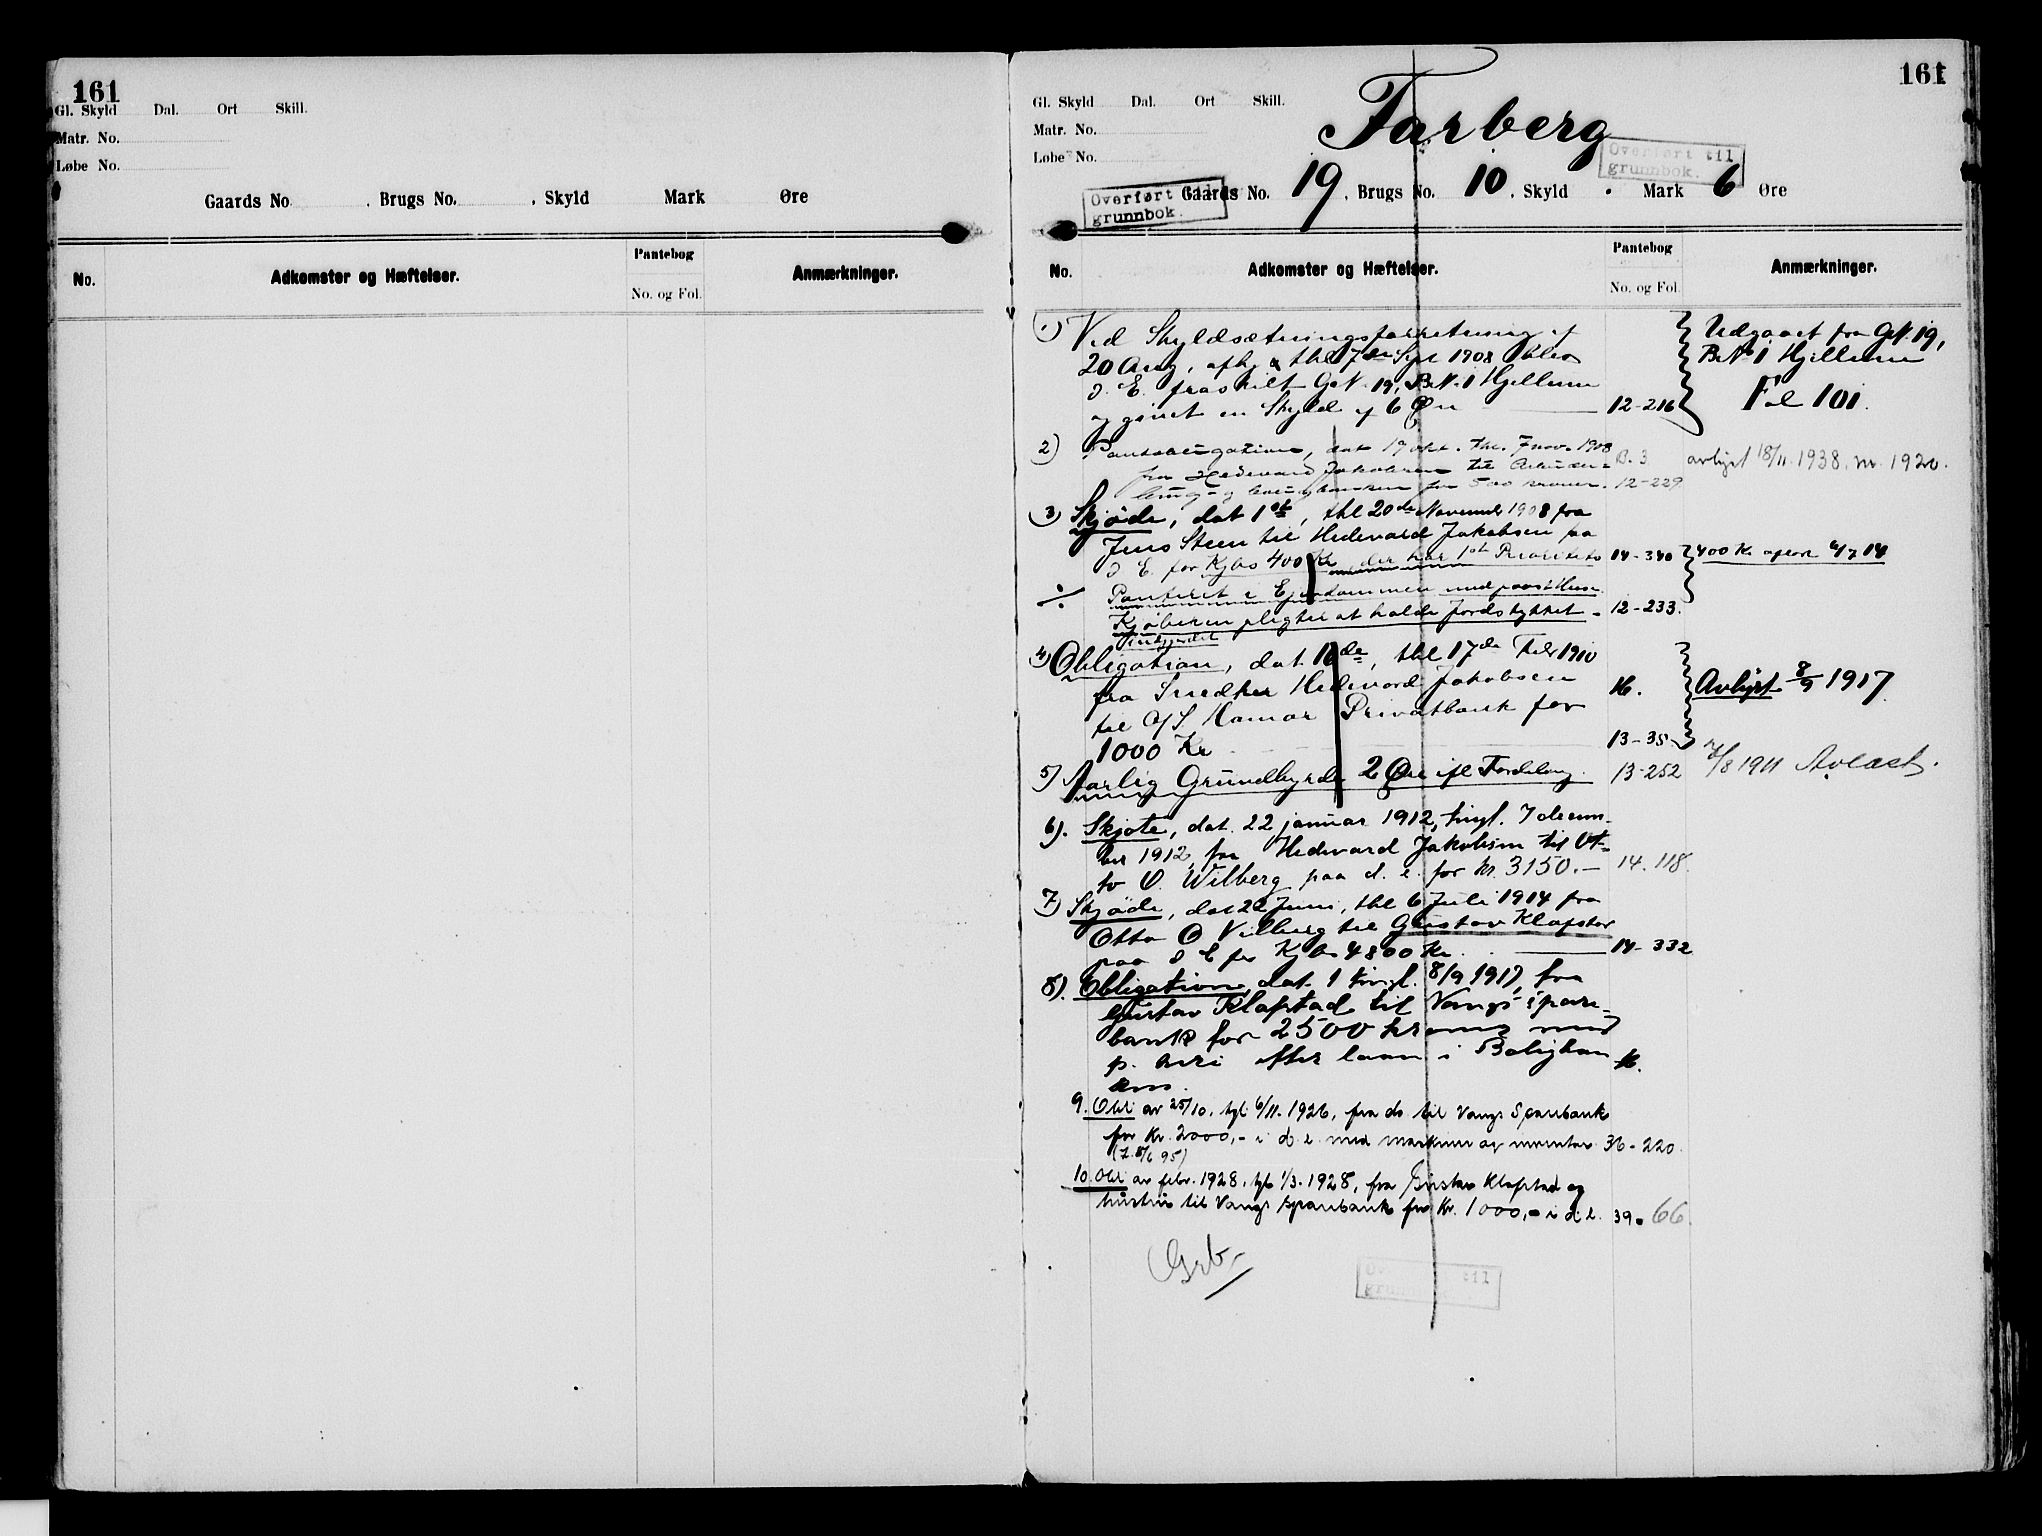 161
Gl. Skyld Dal. Ort Skill.
Matr. No.
Løbe No.
Gaards No. , Brugs No. , Skyld Mark Øre
No. Adkomster og Hæftelser. Pantebog No. og Fol. Anmærkninger.
161
Gl. Skyld Dal. Ort Skill.
Matr. No.
Løbe No.
Farberg
Overført til
grunnbok.
Overført til
grunnbok.
Gaards No. 19, Brugs No. 10, Skyld . Mark 6 Øre
No. Adkomster og Hæftelser. Pantebog No. og Fol. Anmærkninger.
1) Ved Skyldsætningsforretning af
20 Aug, afhj & thl 7de Sept 1908 blev
d. E. fraskilt GN. 19, BN. 1 Hjellum
og givet en Skyld af 6 Øre 12-216
Udgaaet fra GN. 19,
BN 1 Hjellum
Fol 101.
2) Pantobligation, dat 19 okt. thl. 7 nov. 1908 B. 3 avlyst 18/11 1938. nr. 1920.
fra Hedevard Jakobsen til Arbeider-
brug- og boligbanken for 500 kroner. 12-229
3) Skjøde, dat 1st, thl 20de November 1908 fra
Jens Steen til Hedevard Jakobsen paa
d E. for Kjbs 400 Kr, der har 1st Prioritets 14-340 400 Kr
Panteret i Ejendommen med paast. Huse.
Kjøberen pligter at holde Jordstykket - 12-233.
indgjerdet
4) Obligation, dat. 16de, thl 17de Febr 1910
fra Snedker Hedevard Jakobsen 16. Avlyst 8/9 1917.
til A/S. Hamar Privatbank for
1000 Kr 13-35
5) Aarlig Grundbyrde 2 Øre ifl Fordeling. 13-252 /8 1911 Avløst.
6). Skjøte, dat. 22 januar 1912, tingl. 7 decem-
ber 1912, fra Hedevard Jakobsen til Ot-
to O. Wilberg paa d. e. for kr. 3150.- 14. 118.
7) Skjøde, dat 22 Juni, thl 6 Juli 1914 fra
Otto O Vilberg til Gustav Klafstad
paa d E for Kjbs 4800 Kr. 14-332
8). Obligation, dat. 1 tingl. 8/9 1917, fra
Gustav Klafstad til Vangs spare-
bank for 2500 kroner med
p. aari efter laan i Boligban 16.
ken.
9. Obl. av 25/10. tgl. 6/11. 1926, fra do til Vangs Sparebank
for Kr. 2000,- i d. e. med maskiner og inventar 36-220.
10. Obl av febr. 1928. tgl 1/3. 1928, fra Gustav Klafstad og
hustru til Vangs sparebank for Kr. 1000,- i d. e. 39-66.
Grb.
til